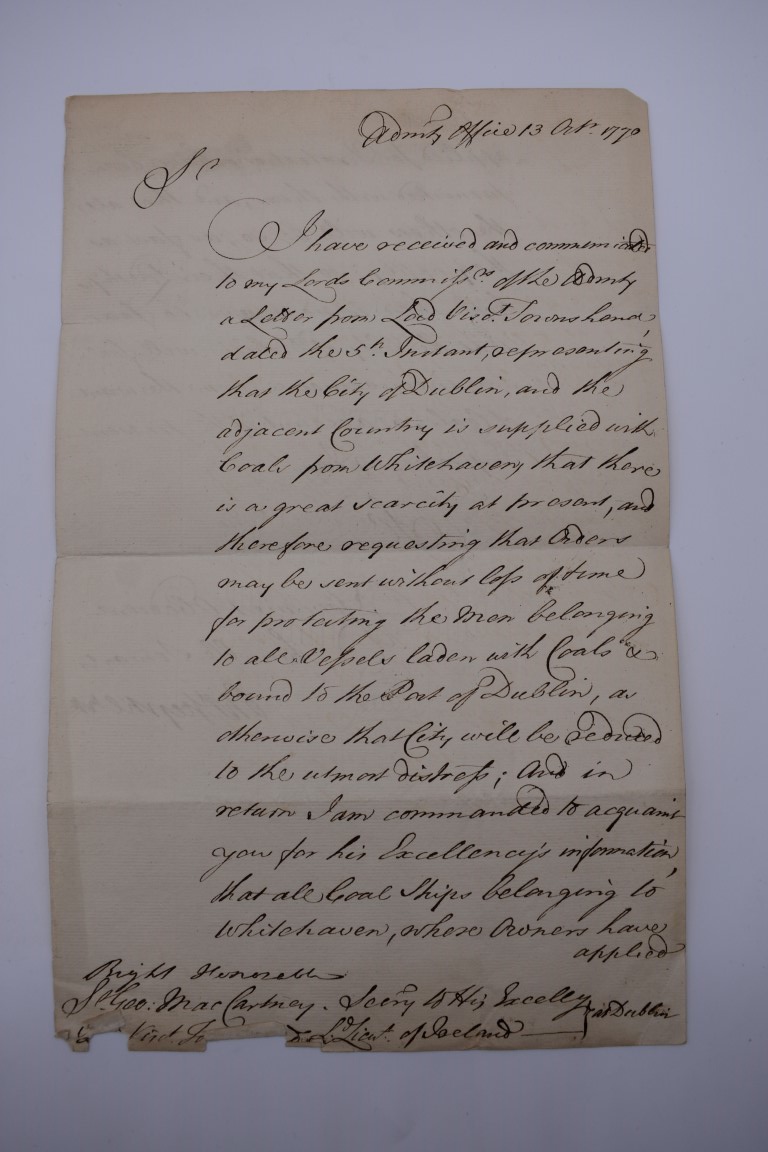 Admty Office 13 Octr. 1770
Sr
I have received and communicated
to my Lords Commissrs of the Admty
a Letter from Lord Visct. Townshend,
dated the 5th. Instant, representing
that the City of Dublin, and the
adjacent Country is supplied with
Coals from Whitehaven, that there
is a great scarcity at present, and
therefore requesting that Orders
may be sent without loss of time
for protecting the Men belonging
to all Vessels laden with Coals &
bound to the Port of Dublin, as
otherwise that City will be reduced
to the utmost distress; And in
return I am commanded to acquaint
you for his Excellency's information,
that all Coal Ships belonging to
Whitehaven, whose Owners have
applied
Right Honorable
Sr. Geo: MacCartney. Secry to His Excelly
Ld. Lieut. of Ireland
at Dublin